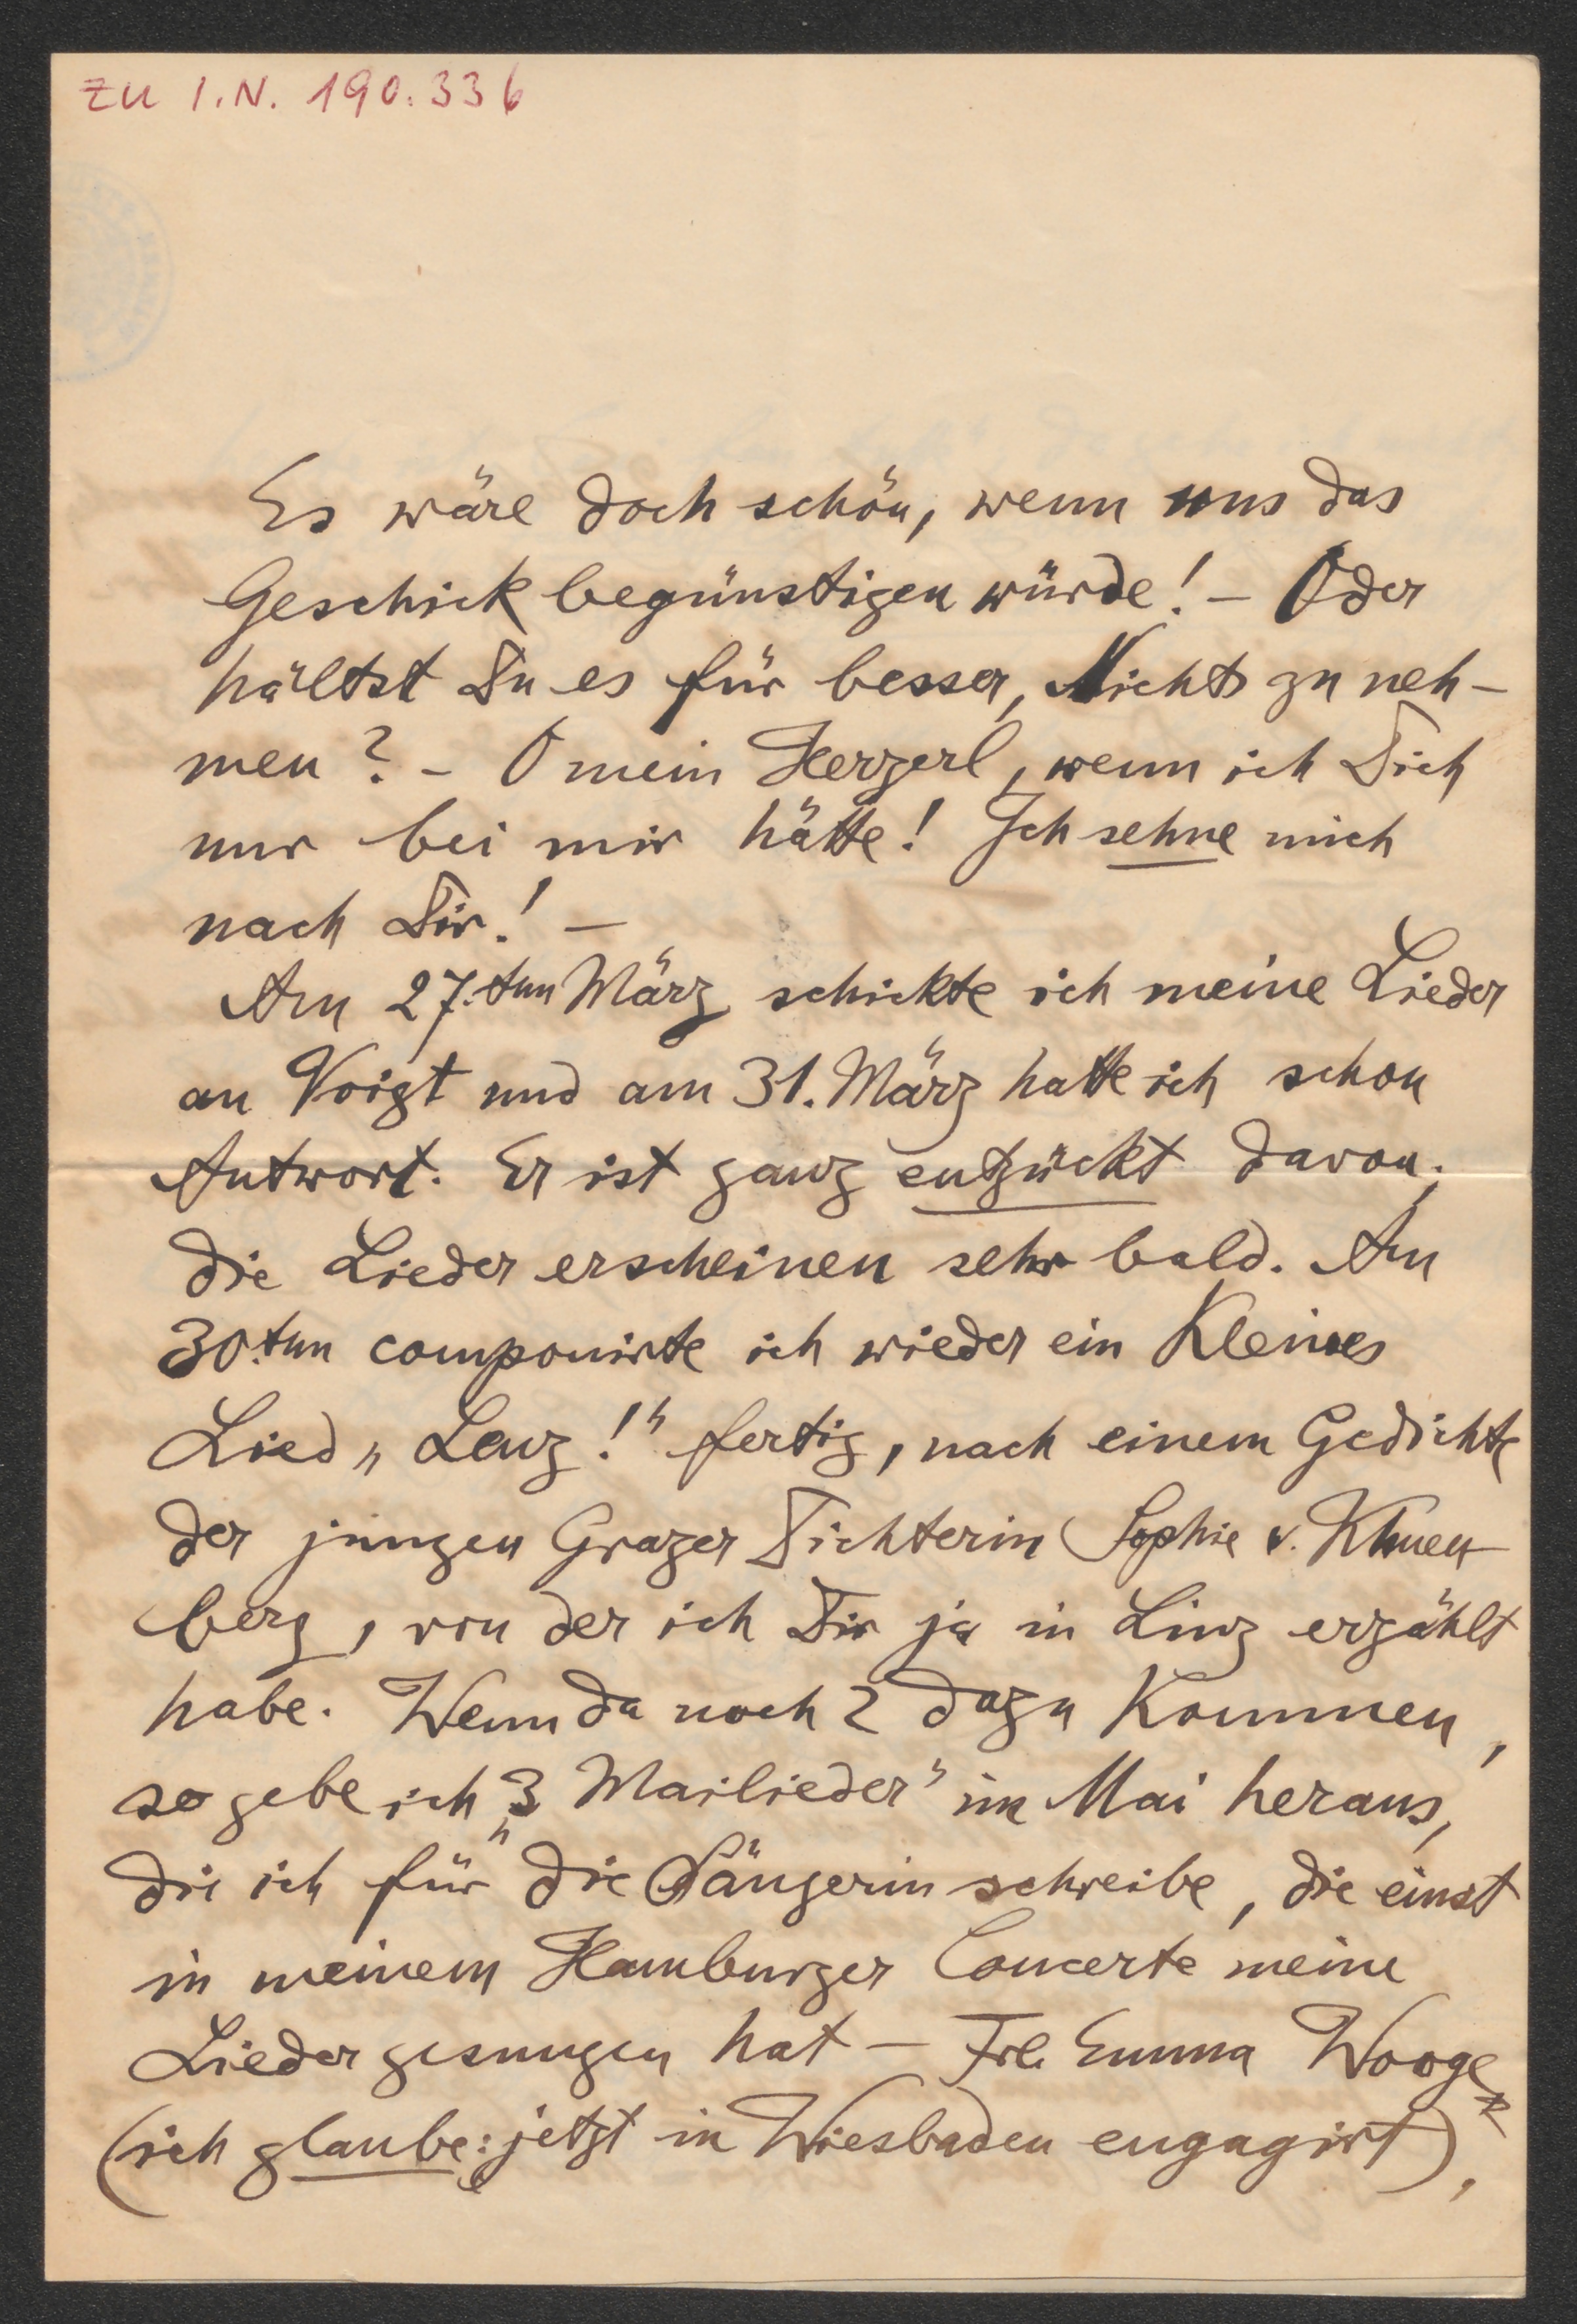 zu I.N. 190.336
Es wäre doch schön, wenn uns das
Geschick begünstigen würde! – Oder
hältst Du es für besser, Nichts zu neh-
men? – O mein Herzerl, wenn ich Dich
nur bei mir hätte! Ich sehne mich
nach Dir! –
Am 27.ten März schickte ich meine Lieder
an Voigt und am 31. März hatte ich schon
Antwort. Er ist ganz entzückt davon;
die Lieder erscheinen sehr bald. Am
30.ten componirte ich wieder ein kleines
Lied „Lenz!“ fertig, nach einem Gedichte
der jungen Grazer Dichterin Sophie v. Khuen
berg, von der ich Dir ja in Linz erzählt
habe. Wenn da noch 2 dazu kommen,
so gebe ich „3 Mailieder“ im Mai heraus,
die ich für die Sängerin schreibe, die einst
in meinem Hamburger Concerte meine
Lieder gesungen hat – Frl. Emma Wooge
(ich glaube: jetzt in Wiesbaden engagirt),